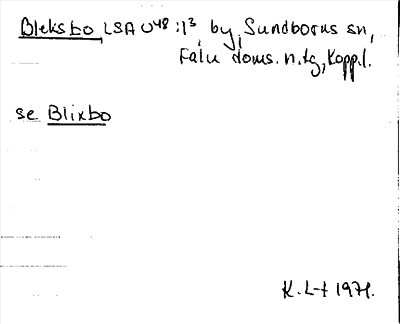 Bleksbo LSA U48:1³, by i Sundborns sn,
Falu doms. n. tg, Kopp.l.
se Blixbo
K. L-t 1971.